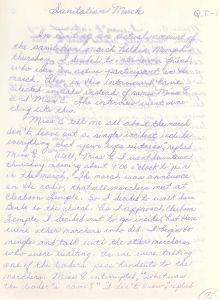 Sanitation March
In giving an actual account of
the sanitation march held in Memphis
Thursday, I decided to interview a friend
who was an active participant in the
march. Then in this interview I have
selected initials instead of names Miss E
and Miss C. The interview went some
thing like this.
Miss C tell me all about the march
don't leave out a single incident include
everything that your eyes witness, replied
Miss E. Well, Miss C I went downtown
Thursday morning about 9:00 o'clock to put
in the march. The march was announce
on the radio, that all marchers met at
Clayborn Temple. So I decided to walk from
Beale to the church. As I approach Clayborn
Temple I decided not to go inside, but there
were other marchers who did. I begin to
mingle and talk with the other marchers
who were waiting. As we were talking
one of the church was speaking to the
marchers. Miss C interrupted, "What was
the leader's name?" I don't know, replied